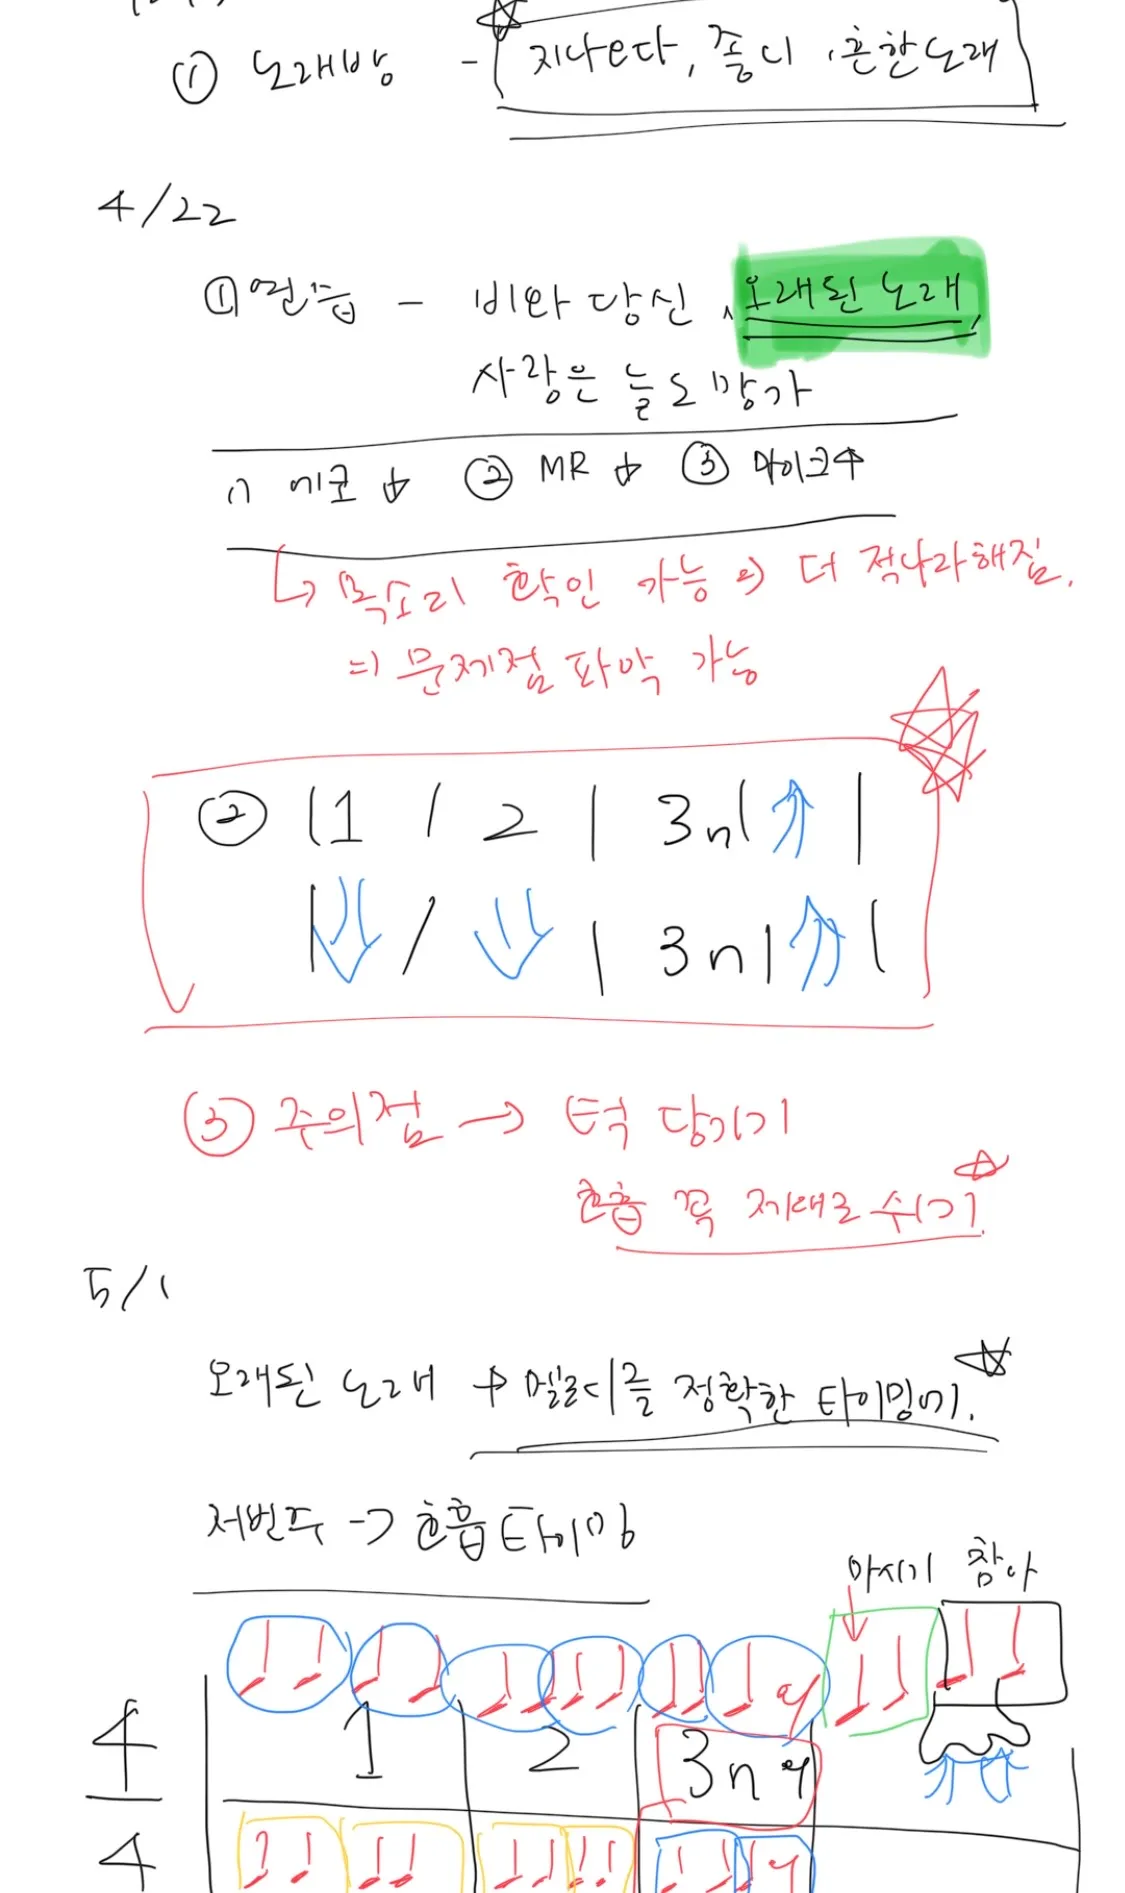 ① 노래방 - 지나오다, 좋니, 흔한노래
4/22
① 연습 - 비와 당신, 오래된 노래,
사랑은 늘 도망가
① 에코 ↓ ② MR ↓ ③ 마이크↑
↳ 목소리 확인 가능 ⇒ 더 적나라해짐.
⇒ 문제점 파악 가능
② | 1 / 2 | 3 n | ↑ |
| ↓ / ↓ | 3 n | ↑ |
③ 주의점 → 턱 당기기
호흡 꼭 제대로 쉬기
5/1
오래된 노래 → 멜로디를 정확한 타이밍에.
저번주 -> 호흡 타이밍
마시기 참아
4 1 2 3 n
4